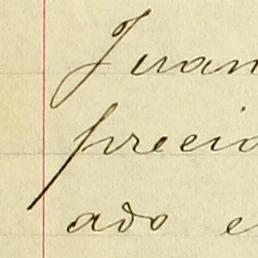 Juan
precio
ado e